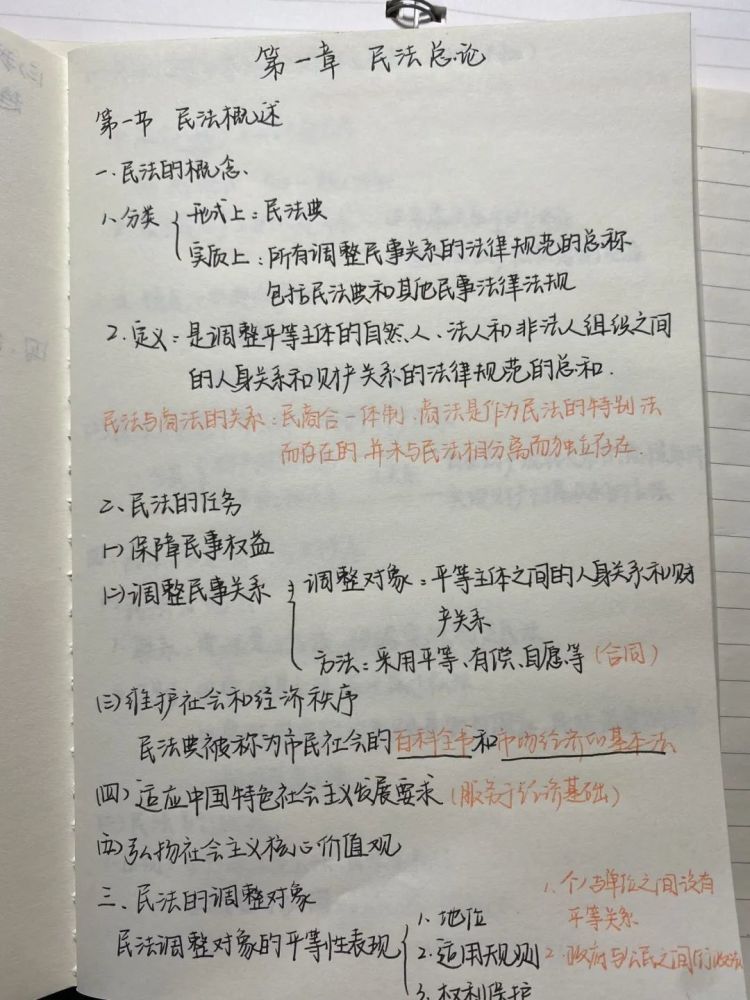 第一章 民法总论
第一节 民法概述
一.民法的概念.
1、分类 形式上：民法典
实质上：所有调整民事关系的法律规范的总称
包括民法典和其他民事法律法规
2.定义：是调整平等主体的自然人、法人和非法人组织之间
的人身关系和财产关系的法律规范的总和.
民法与商法的关系：民商合一体制，商法是作为民法的特别法
而存在的，并未与民法相分离而独立存在.
二、民法的任务
(一)保障民事权益
(二)调整民事关系 调整对象：平等主体之间的人身关系和财
产关系
方法：采用平等、有偿、自愿等(合同)
(三)维护社会和经济秩序
民法典被称为市民社会的百科全书和市场经济的基本法
(四)适应中国特色社会主义发展要求(服务于经济基础)
(五)弘扬社会主义核心价值观
三、民法的调整对象
民法调整对象的平等性表现
1.地位
2.适用规则
3.权利保护
1.个人与单位之间没有
平等关系
2.政府与公民之间